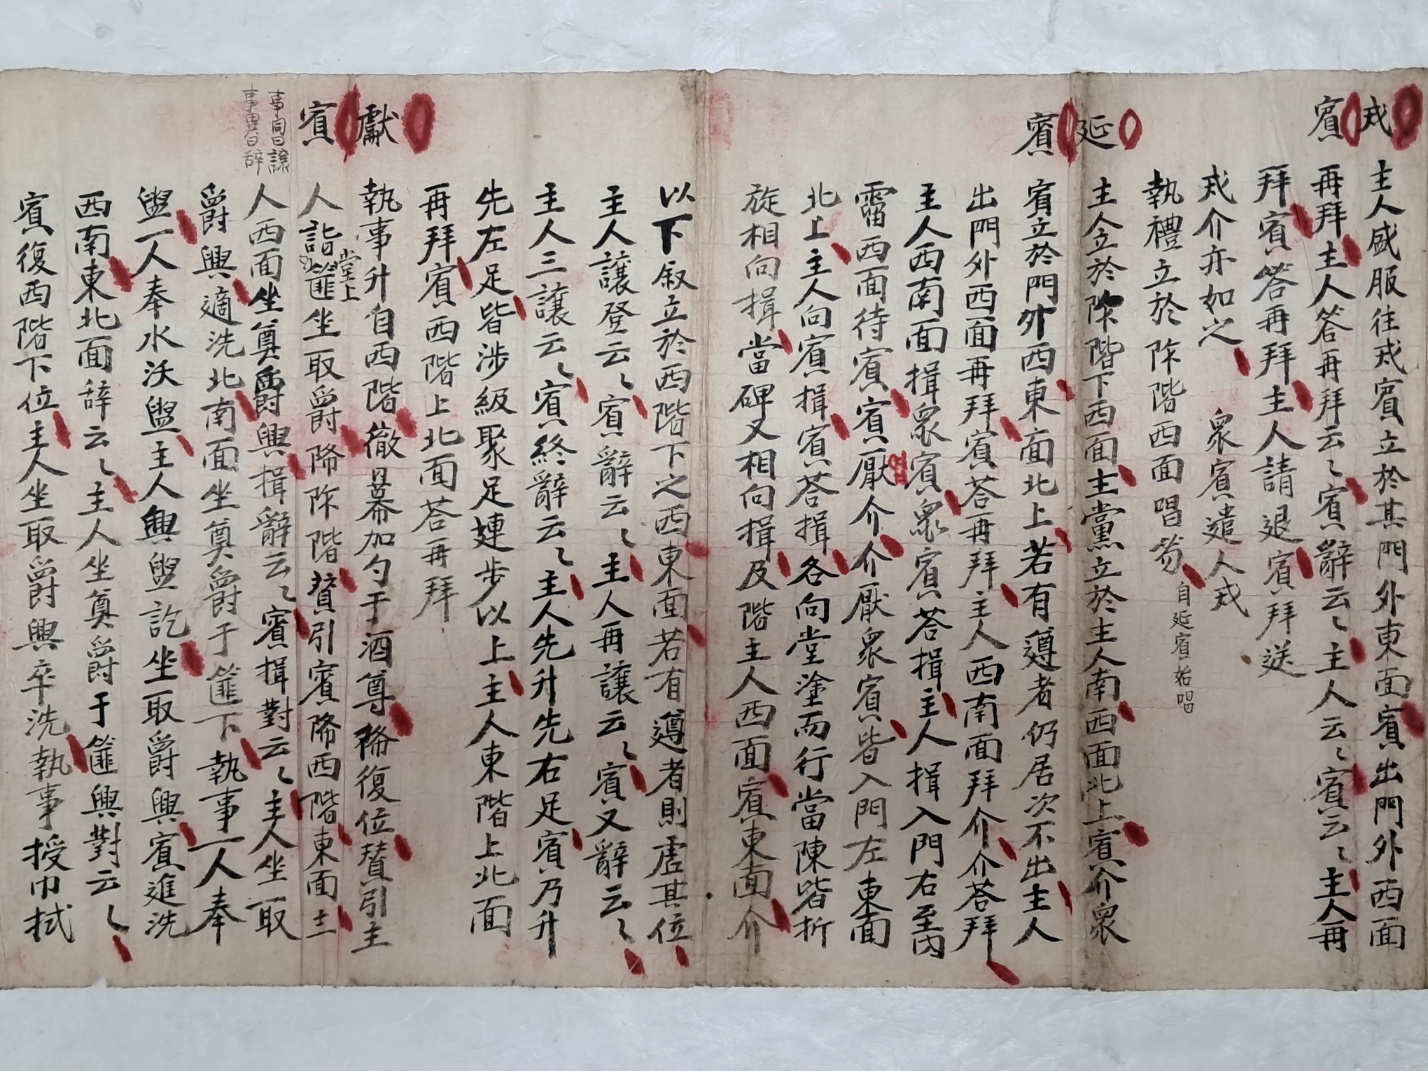 戒賓
主人盛服往戒賓立於其門外東面賓出門外西面
再拜主人答再拜云云賓辭云云主人云云賓云云主人再
拜賓答再拜主人請退賓拜送
戒介亦如之 衆賓遣人戒
執禮立於阼階西面唱笏 自延賓始唱
延賓
主人立於阼階下西面主黨立於主人南西面北上賓介衆
賓立於門外西東面北上若有遵者仍居次不出主人
出門外西面再拜賓荅再拜主人西南面拜介介荅拜
主人西南面揖衆賓衆賓荅揖主人揖入門右至內
霤西面待賓賓厭介介厭衆賓皆入門左東面
北上主人向賓揖賓荅揖各向堂塗而行當陳皆折
旋相向揖當碑又相向揖及階主人西面賓東面介
以下叙立於西階下之西東面若有遵者則虛其位
主人讓登云云賓辭云云主人再讓云云賓又辭云云
主人三讓云云賓終辭云云主人先升先右足賓乃升
先左足皆涉級聚足連步以上主人東階上北面
再拜賓西階上北面荅再拜
獻賓
執事升自西階徹冪加勺于酒尊降復位賛引主
人詣堂上篚坐取爵降阼階賛引賓降西階東面主
事同曰讓
事異曰辭
人西面坐奠爵興揖辭云云賓揖對云云主人坐取
爵興適洗北南面坐奠爵于篚下執事一人奉
盥一人奉水沃盥主人興盥訖坐取爵興賓進洗
西南東北面辭云云主人坐奠爵于篚興對云云
賓復西階下位主人坐取爵興卒洗執事授巾拭